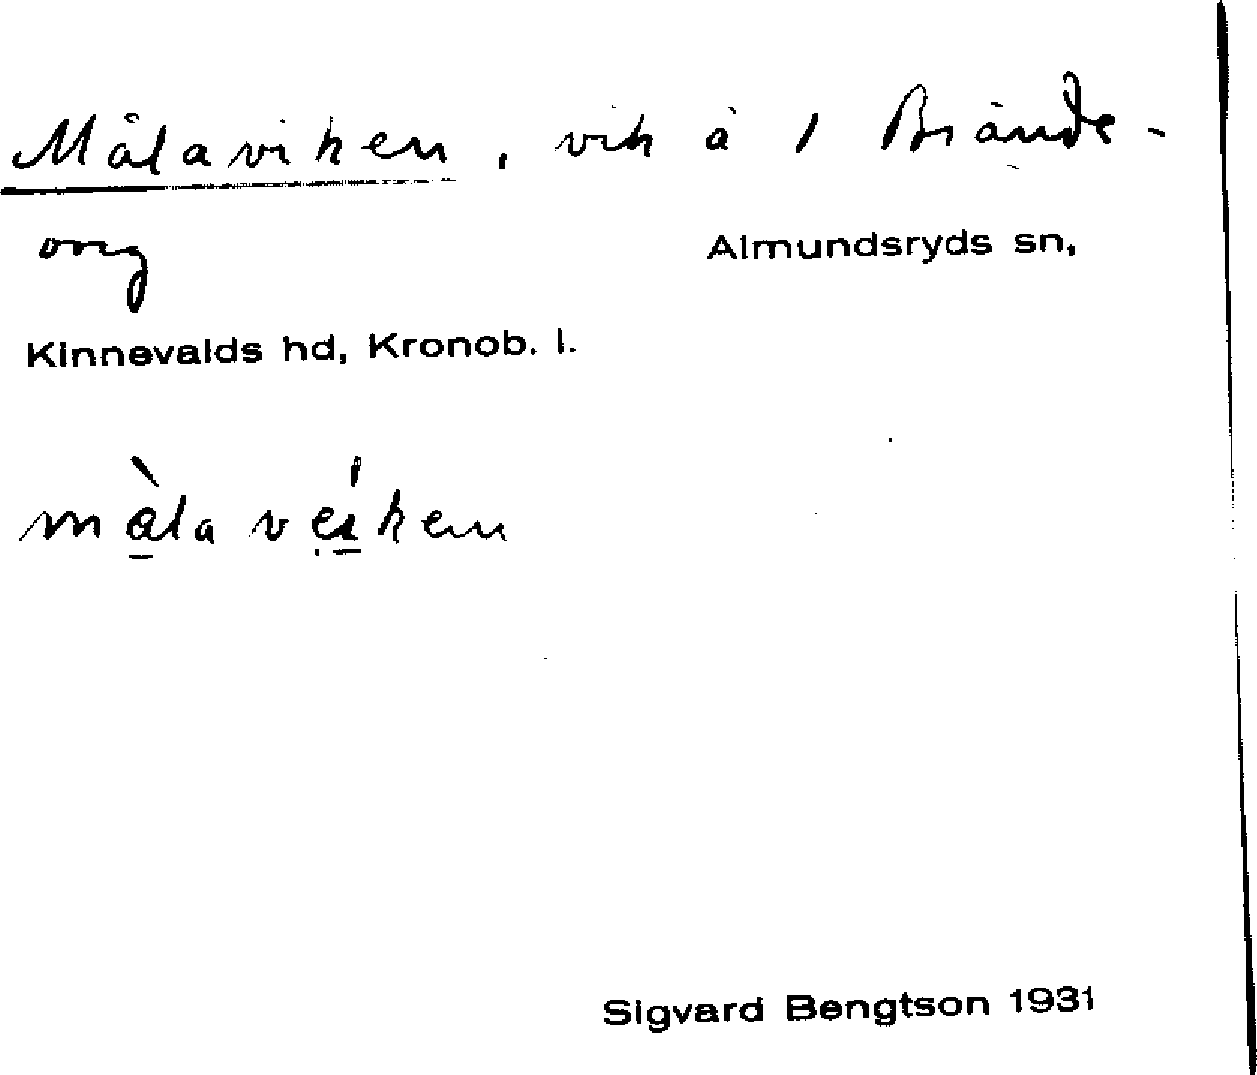 Målaviken, vik å 1 Brände-
org
Almundsryds sn,
Kinnevalds hd, Kronob. l.
må̀la véiken
Sigvard Bengtson 1931